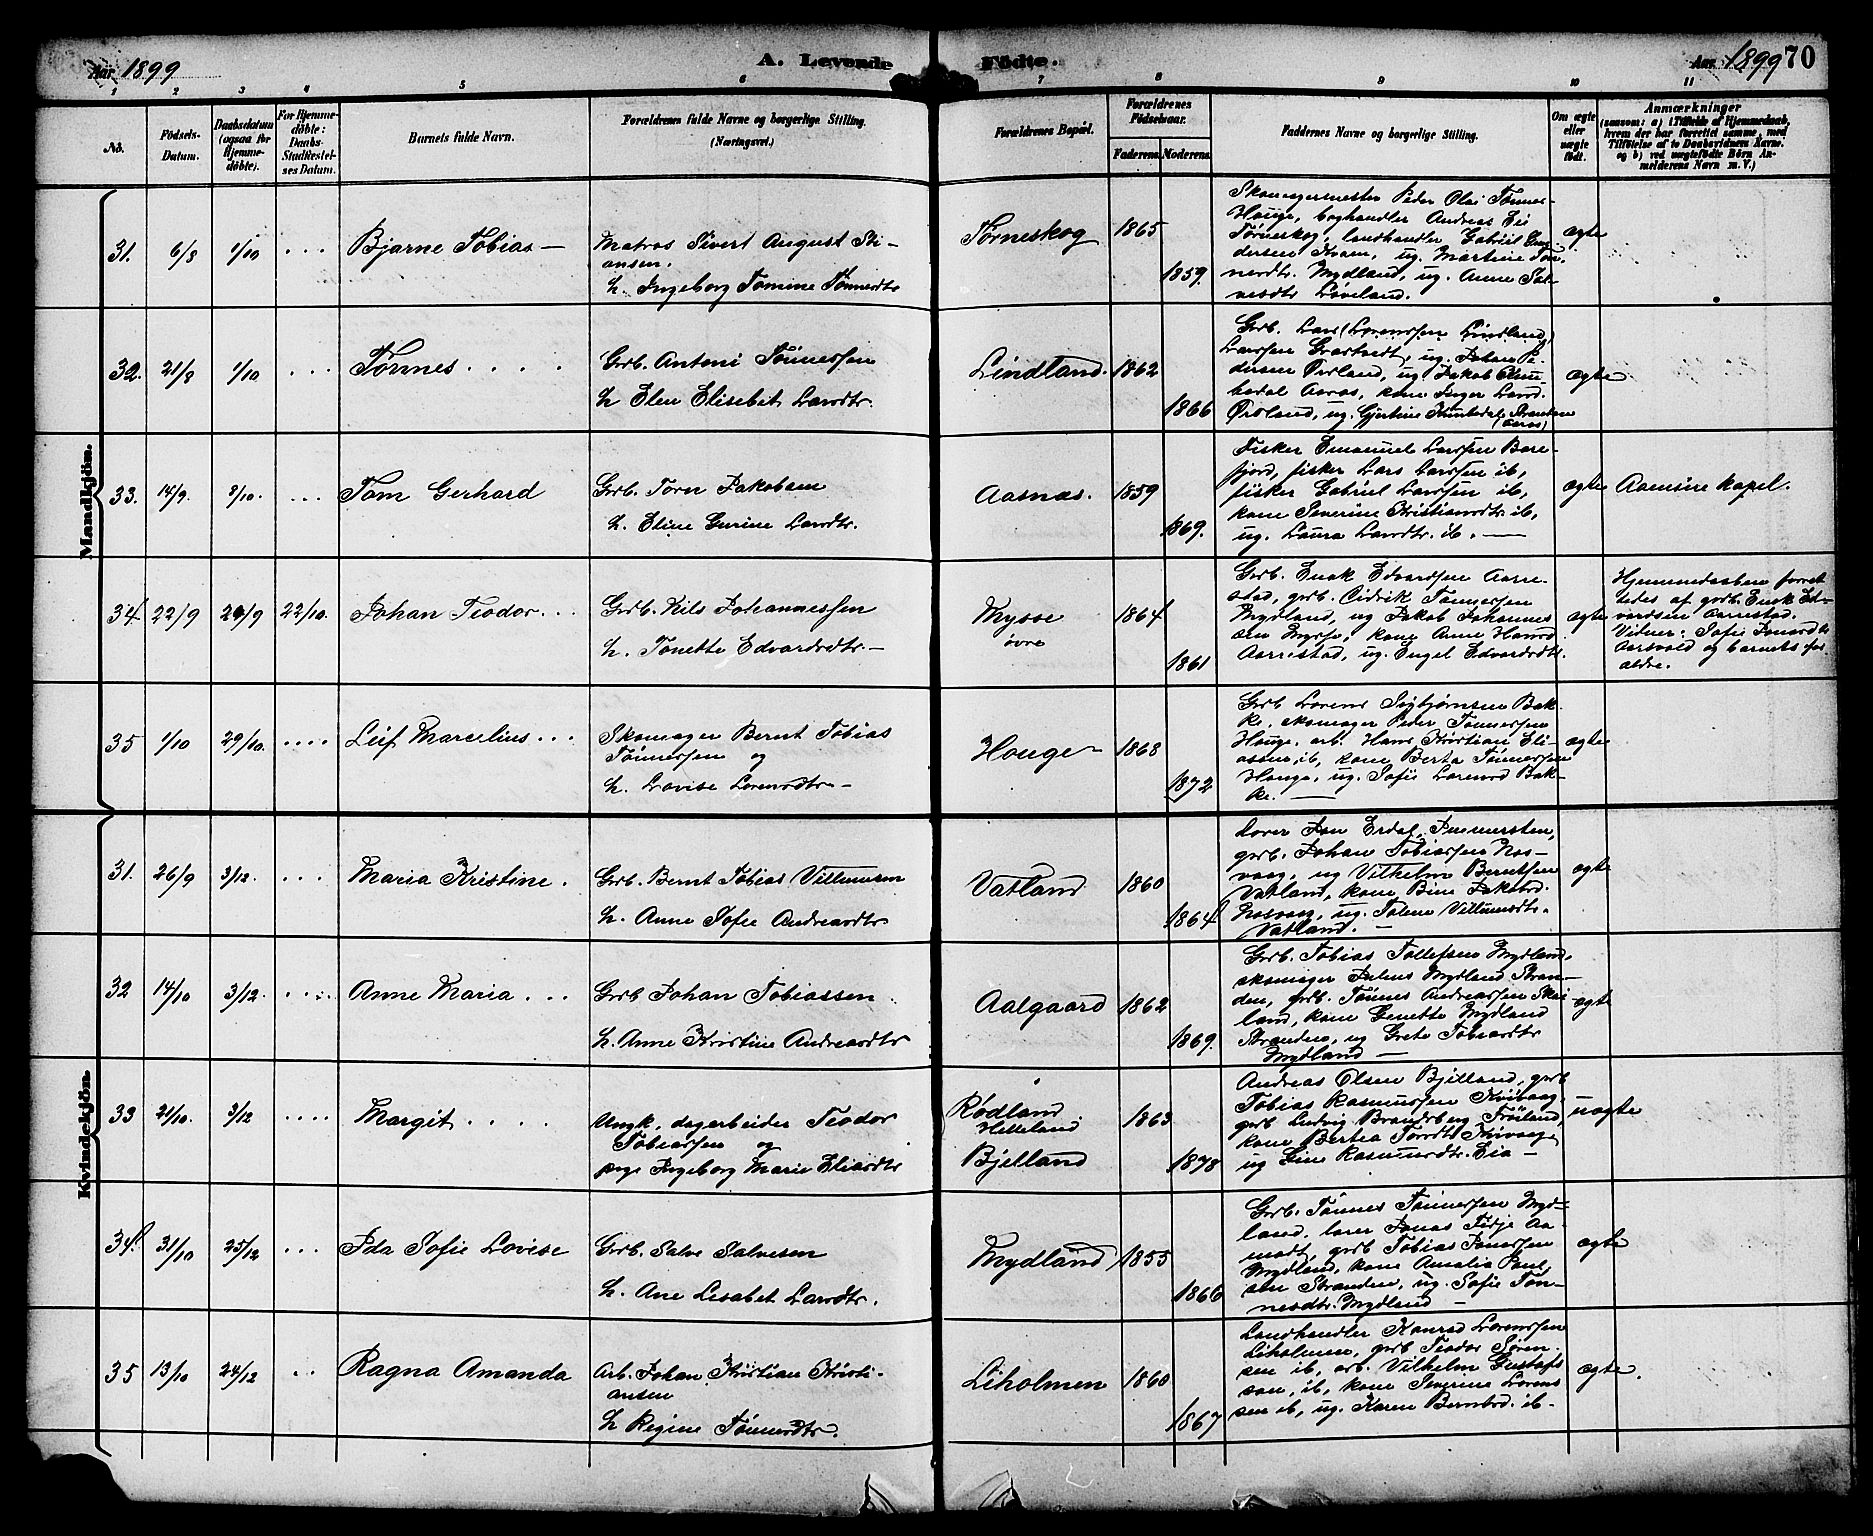 Aar 1899
A. Levende Födte.
Aar 1899 70
1 2 3 4 5 6 7 8 9 10 11
No.
Födsels-
Datum.
Daabsdatum
(ogsaa for
Hjemme-
döbte).
For Hjemme-
döbte:
Daabs-
Stadfæstel-
ses Datum.
Barnets fulde Navn.
Forældrenes fulde Navne og borgerlige Stilling.
(Næringsvei.)
Forældrenes Bopæl.
Forældrenes
Födselsaar.
Faderens. Moderens.
Faddernes Navne og borgerlige Stilling.
Om ægte
eller
uægte
födt.
Anmærkninger
(saasom: a) i Tilfælde af Hjemmedaab,
hvem der har forrettet samme, med
Tilföielse af to Daabsvidners Navne.
og b) ved uægtefödte Börn An-
melderens Navn m. V.)
Mandkjön.
31. 6/8 1/10 . . . Bjarne Tobias —
Matros Sivert August Sti-
ansen.
h. Ingeborg Tomine Tønnesdtr
Tørneskog 1865 1859.
Skomagermester Peder Olai Tønnes-
Houge, boghandler Andreas Eie
Tørneskog, landhandler Gabriel
dersen Kvam, ug. Martine Tøn-
nesdtr. Mydland, ug. Anne Sal-
vesdtr Løveland.
ægte
32. 21/8 1/10 . . . Tønnes . . . .
Grb. Antoni Tönnessen
h Elen Elisebet Larsdtr.
Lindland. 1862 1866
Grb. Lars (Lorenssen Lindland)
Larssen ug. Johan Pe-
dersen Ørsland, ug. Jakob
Aaros, kone Inger Larsd.
Ørsland, ug. Gjertine Stranden
(Aaros)
ægte
33. 14/9. 8/10. . . . Tom Gerhard
Grb. Torn Jakobsen
h. Eline Gurine Larsdtr.
Aasnas. 1859 1869.
Fisker Emanuel Larssen Bare-
fjord, fisker Lars Larssen ib,
fisker Gabriel Larssen ib,
kone Severine Kristiansdtr ib,
ug. Laura Larsdtr. ib. —
ægte Aamsire kapel.
34 22/9 24/9 22/10. Johan Teodor. . .
Grb. Nils Johannessen
h. Tonette Edvardsdtr. —
Mysse
övre
1864 1861
Grb. Enok Edvardsen Aarre-
stad, grb. Didrik Tönnessen
Mydland, ug Jakob Johannes
sen Mysse, kone Anne Hansd
Aarrestad, ug. Engel Edvardsdtr.
ægte
Hjemmedaaben forret
tedes af grb. Enok Ed-
vardsen Aarrestad.
Vidner: Sofie Jonasdtr
Aarsvold og barnets for
ældre.
35 1/10 29/10. . . . . Leif Marcelius . . .
Skomager Bernt Tobias
Tönnessen og
h. Lovise Lorensdtr —
Houge 1868 1872
Grb Lorens Sigbjørnsen Bak-
ke, skomager Peder Tönnessen
Houge, arb. Hans Kristian Eli-
assen ib, kone Berta Tönnessen
Houge, ug. Sofie Lorensd Bak-
ke. —
ægte
Kvindekjön.
31. 26/9 3/12. . . . Maria Kristine .
Grb. Bernt Tobias Villumsen
h. Anne Sofie Andreasdtr
Vatland 1860 1864
Lærer Jan Erdal, Immersten,
grb. Johan Tobiassen Nos-
vaag, ug Vilhelm Berntsen
Vatland, kone Bine Jakobsd.
Nosvaag, ug. Talene Villumsdtr.
Vatland. —
ægte
32 14/10 3/12. . . . . Anne Maria . . .
Grb Johan Tobiassen
h. Anne Kristine Andreasdtr
Aalgaard 1862 1869.
Grb. Tobias Tollefsen Mydland,
skomager Julius Mydland Stran-
den, grb. Tönnes Andreassen Skri-
land, kone Genette Mydland
Stranden, ug Grete Tobiasdtr
Mydland —
ægte
33 21/10. 3/12 . . . . Margit . . . .
Ungk. dagarbeider Teodor
Tobiassen og
pige Ingeborg Marie Eliasdtr
Rødland
Helleland
Bjelland
1863 1878
Andreas Olsen Bjelland, grb
Tobias Rasmussen Kvivaag,
grb Ludvig Brandsberg Fröiland,
kone Bertea Torsdtr Kvivaag
ug Line Rasmusdtr. Eia —
uægte
34. 31/10 25/12 . . . Ida Sofie Lovise
Grb. Salve Salvesen
h. Ane Lisabet Larsdtr.
Mydland 1855 1866
Grb. Tönnes Tönnessen Myd-
land, lærer Jonas Terje Aa-
modt, grb Tobias Jonassen
Mydland, kone Amalia Paul-
sen Stranden, ug. Sofie Tøn-
nesdtr. Mydland —
ægte
35 13/10 24/12 . . Ragna Amanda
Arb. Johan Kristian Kristi-
ansen
h Regine Tönnesdtr.
Liholmen 1860 1867
Landhandler Konrad Lorenssen
Liholmen, grb Teodor Sören-
sen ib, arb. Vilhelm Gustafs
son, ib, kone Severine Lorens
sen ib, ug. Karen Berntsd. ib.
ægte.